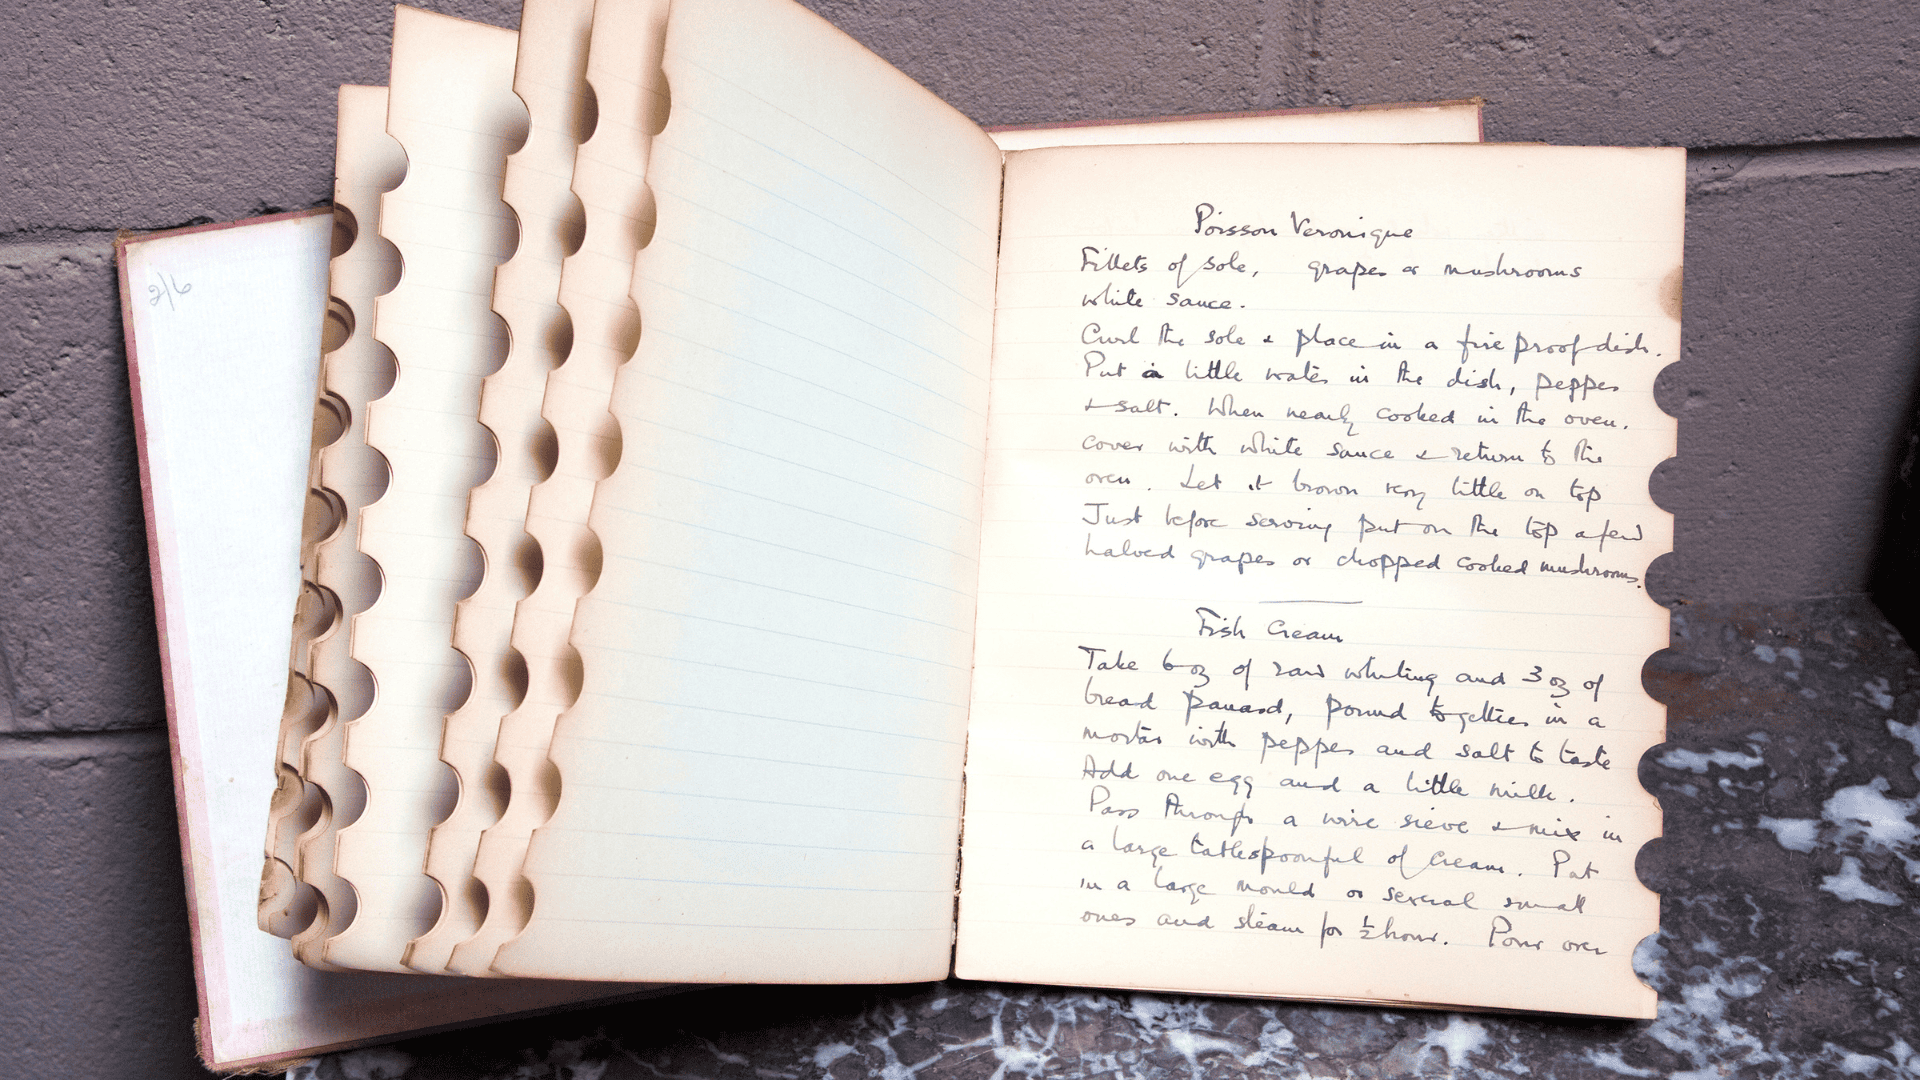 2/6
Poisson Veronique
Fillets of sole, grapes or mushrooms
white sauce.
Curl the sole & place in a fire proof dish.
Put a little water in the dish, pepper
& salt. When nearly cooked in the oven.
cover with white sauce & return to the
oven. Let it brown very little on top
Just before serving put on the top a few
halved grapes or chopped cooked mushrooms.
Fish Cream
Take 6 oz of raw whiting and 3 oz of
bread panard, pound together in a
mortar with pepper and salt to taste
Add one egg and a little milk.
Pass through a wire sieve & mix in
a large tablespoonful of cream. Put
in a large mould or several small
ones and steam for ½ hour. Pour over